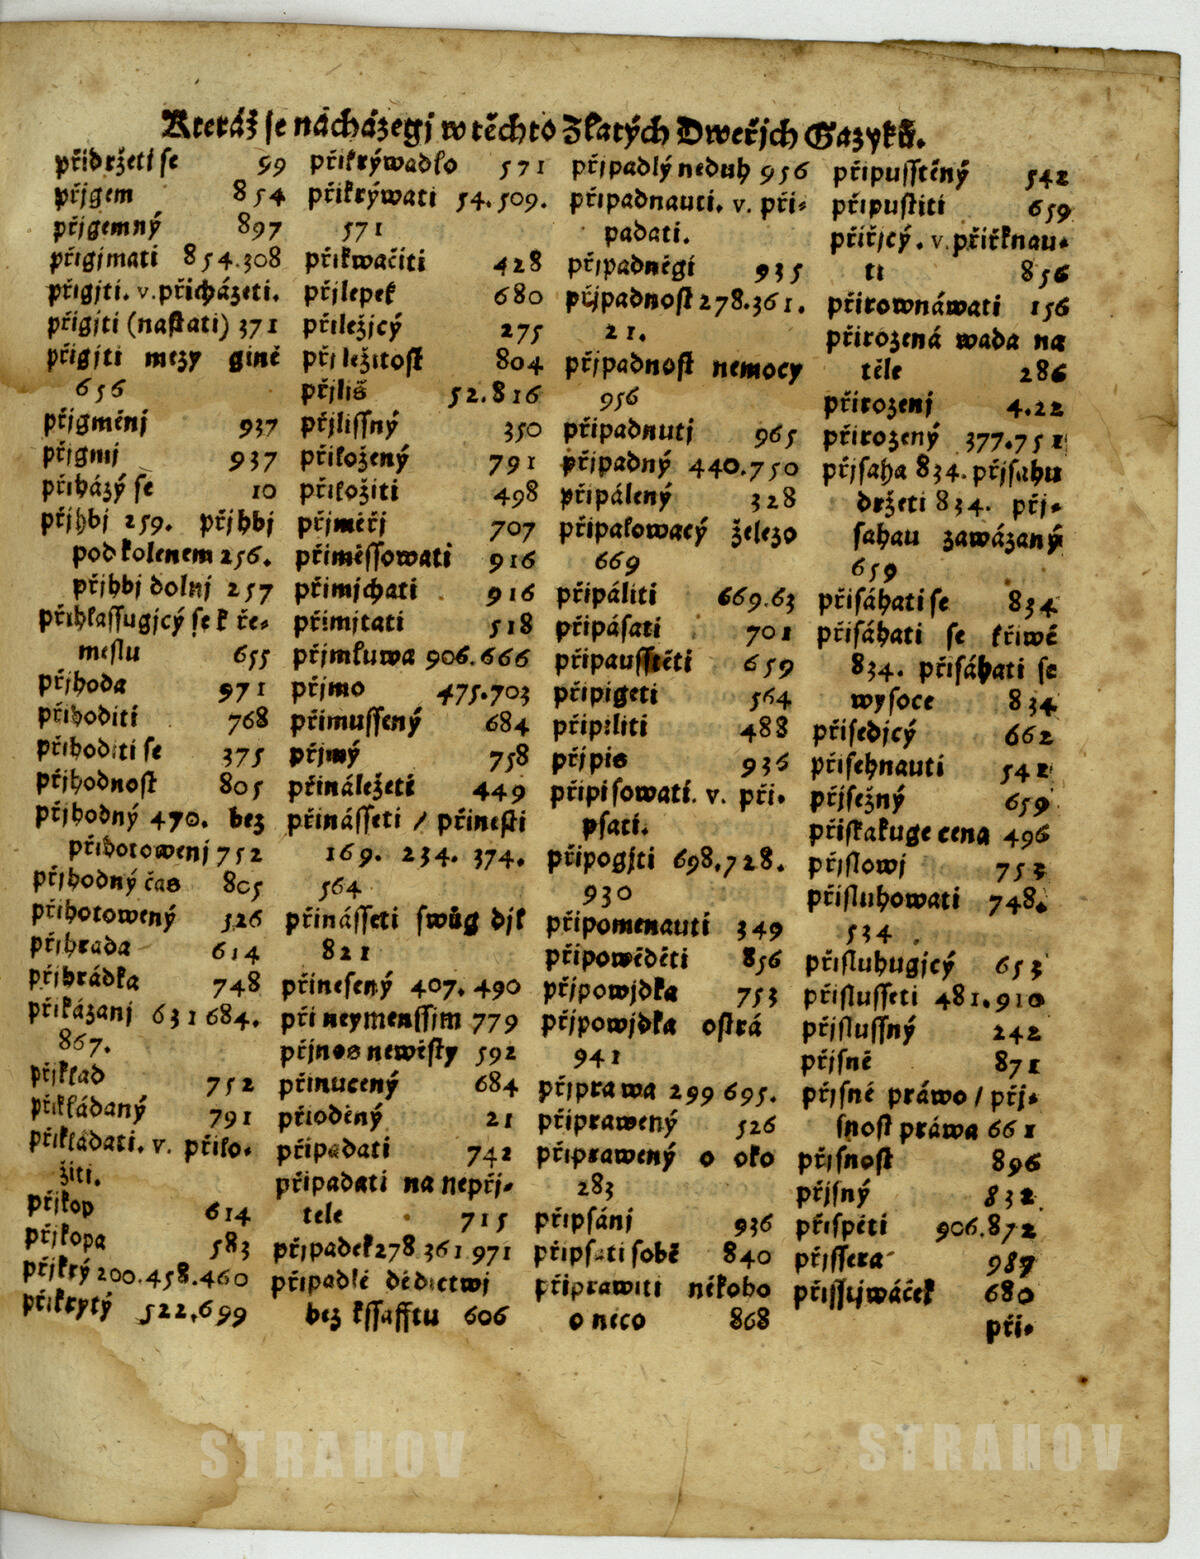 Kteráž se nácházegj w těchto Zlatých Dweřjch Gazyků.
přidržeti se 99
přjgem 854
přjgemný 897
přigjmati 854.308
přigjti. v. přicházeti.
přigjti (nastati) 371
přigjti mezy giné
656
přjgměnj 937
přjgmj 937
přiházý se 10
přjhbj 259. přjhbj
pod kolenem 256.
přjhbj dolnj 257
přihlassugjcý se k ře-
meslu 655
přjhoda 971
přihoditi 768
přihoditi se 375
přjhodnost 805
přjhodný 470. bez
přihotowenj 752
přjhodný čas 805
přihotowený 526
přjhrada 614
přjhrádka 748
přikázanj 631 684.
867.
přjklad 752
přikládaný 791
přikládati. v. přilo-
žiti.
přjkop 614
přjkopa 583
přjkrý 200.458.460
přikrytý 522.699
přikrýwadlo 571
přikrýwati 54.509.
571
přikwačiti 428
přjlepek 680
přiležjcý 275
přjležitost 804
přjliš 52.816
přjlissný 350
přiložený 791
přiložiti 498
přjměřj 707
přiměssowati 916
přimjchati 916
přimjtati 518
přjmluwa 906.666
přjmo 475.703
přimussený 684
přjmý 758
přináležeti 449
přinásseti / přinesti
169. 234. 374.
564
přinásseti swůg djl
821
přinesený 407. 490
při neymenssjm 779
přjnos newěsty 592
přinucený 684
přioděný 21
připadati 742
připadati na nepřj-
tele 715
přjpadek 278 361.971
připadlé dědictwj
bez kssafftu 606
přjpadlý neduh 956
připadnauti. v. při-
padati.
přjpadněgi 935
přjpadnost 278.361.
21.
přjpadnost nemocy
956
připadnutj 965
přjpadný 440.750
připálený 328
připalowacý železo
669
připáliti 669.63
připásati 701
připausstěti 659
připigeti 564
připiliti 488
přjpis 936
připisowati. v. při-
psati.
připogjti 698.728.
930
připomenauti 349
připowěděti 856
přjpowjdka 753
přjpowjdka ostrá
941
přjprawa 299 695.
připrawený 526
připrawený o oko
283
připsánj 936
připsati sobě 840
připrawiti někoho
o něco 868
připusstěný 542
připustiti 659
přiřjcý. v. přiřknau-
ti 856
přirownáwati 156
přirozená wada na
těle 286
přirozenj 4.22
přirozený 377.751
přjsaha 834. přjsahu
držeti 834. přj-
sahau zawázaný
659
přisáhati se 834
přisáhati se křiwě
834. přisáhati se
wysoce 834
přisedjcý 662
přisehnauti 542
přjsežný 659
přiskakuge cena 496
přjslowj 753
přisluhowati 748.
534
přisluhugjcý 653
přislusseti 481.910
přjslussný 242
přjsně 871
přjsné práwo / přj-
snost práwa 661
přjsnost 896
přjsný 832
přispěti 906.872
přjssera 987
přissijwáček 680
při-
STRAHOV
STRAHOV